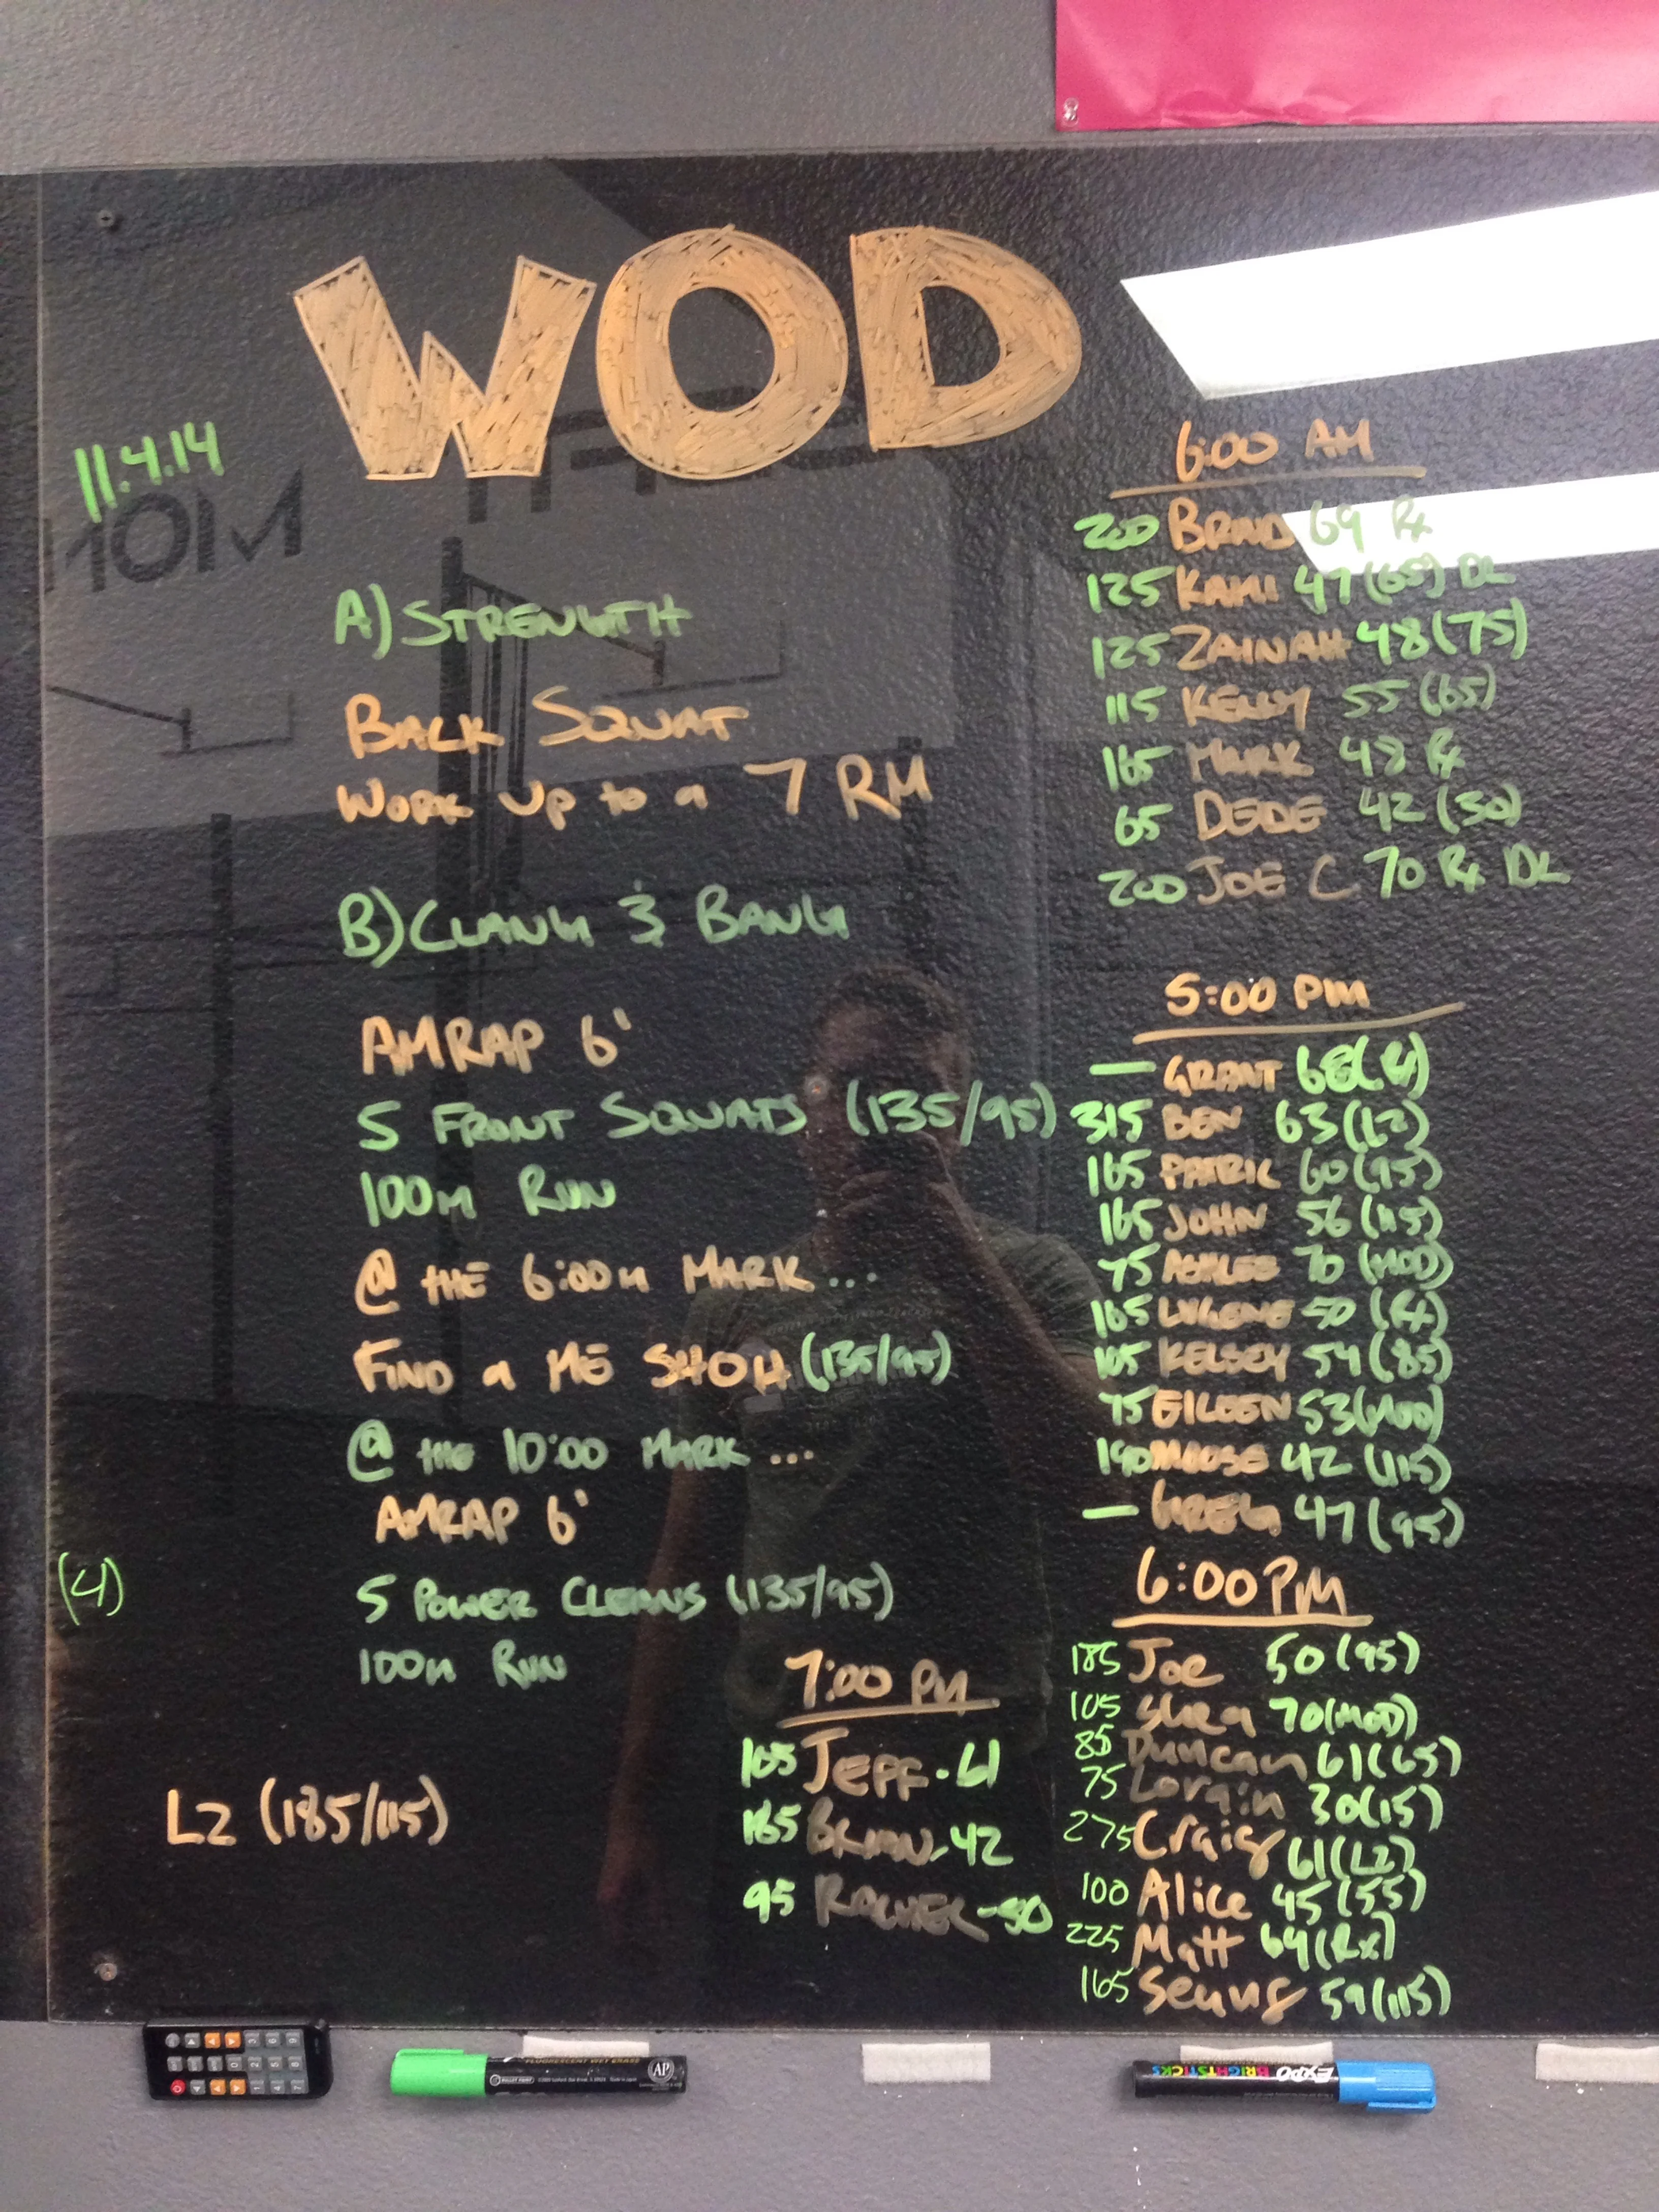 WOD
11.4.14
A) STRENGTH
BACK SQUAT
WORK UP to a 7 RM
B) CLANG & BANG
AMRAP 6'
5 FRONT SQUATS (135/95)
100m RUN
@ THE 6:00m MARK...
FIND a ME SHOH (135/95)
@ the 10:00 MARK...
AMRAP 6'
(4)
5 POWER CLEANS (135/95)
100m RUN
L2 (185/115)
6:00 AM
200 BRAD 69 Rx
125 KAMI 47 (65) DL
125 ZAINAH 48 (75)
115 KELLY 55 (65)
165 MARK 48 Rx
65 DEDE 42 (30)
200 JOE C 70 Rx DL
5:00 PM
— GRANT
315 BEN 63 (L2)
165 PATRIC 60 (95)
165 JOHN 56 (115)
75 ASHLEE 70 (MOD)
165 50 (Rx)
105 KELSEY 54 (85)
75 EILEEN 53 (MOD)
190 MOOSE 42 (115)
— GREG 47 (95)
6:00 PM
185 Joe 50 (95)
105 Shea 70 (MOD)
85 Duncan 61 (65)
75 Lorain 30 (15)
275 Craig 61 (L2)
100 Alice 45 (55)
225 Matt 64 (Rx)
165 Seung 59 (115)
7:00 PM
165 JEFF - 61
185 BRIAN - 42
95 RACHEL - 50
FLUORESCENT WET ERASE
AP
EXPO
BRIGHTSTICKS